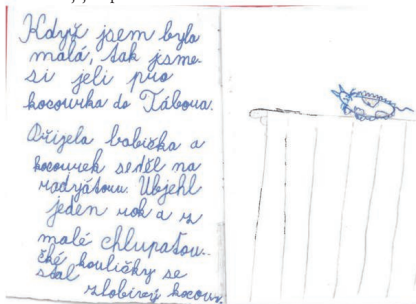 Když jsem byla
malá, tak jsme
si jeli pro
kocourka do Tábora.
Přijela babička a
kocourek seděl na
radyátoru. Ubjehl
jeden rok a z
malé chlupatou..
čké kouličky se
stal zlobivý kocour.